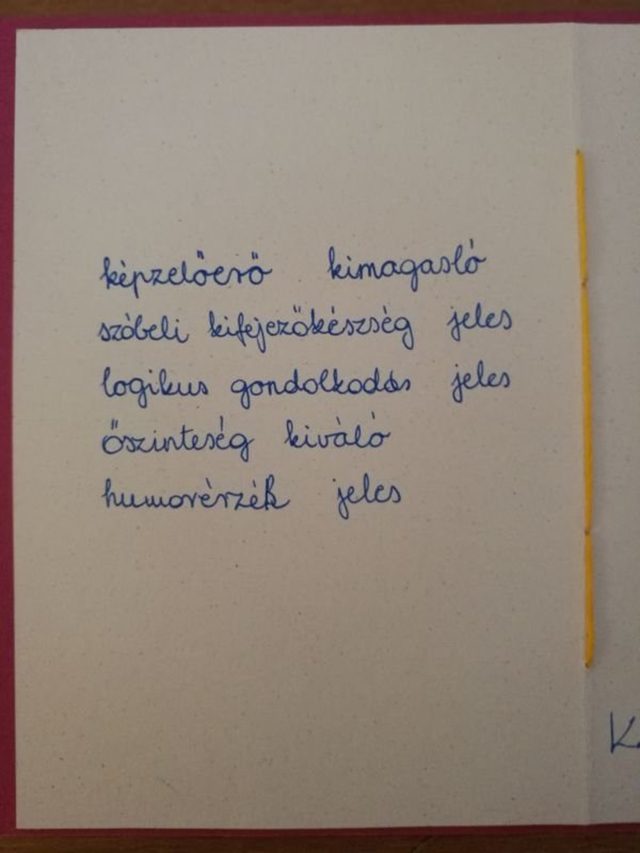 képzelőerő kimagasló
szóbeli kifejezőkészség jeles
logikus gondolkodás jeles
őszinteség kiváló
humorérzék jeles